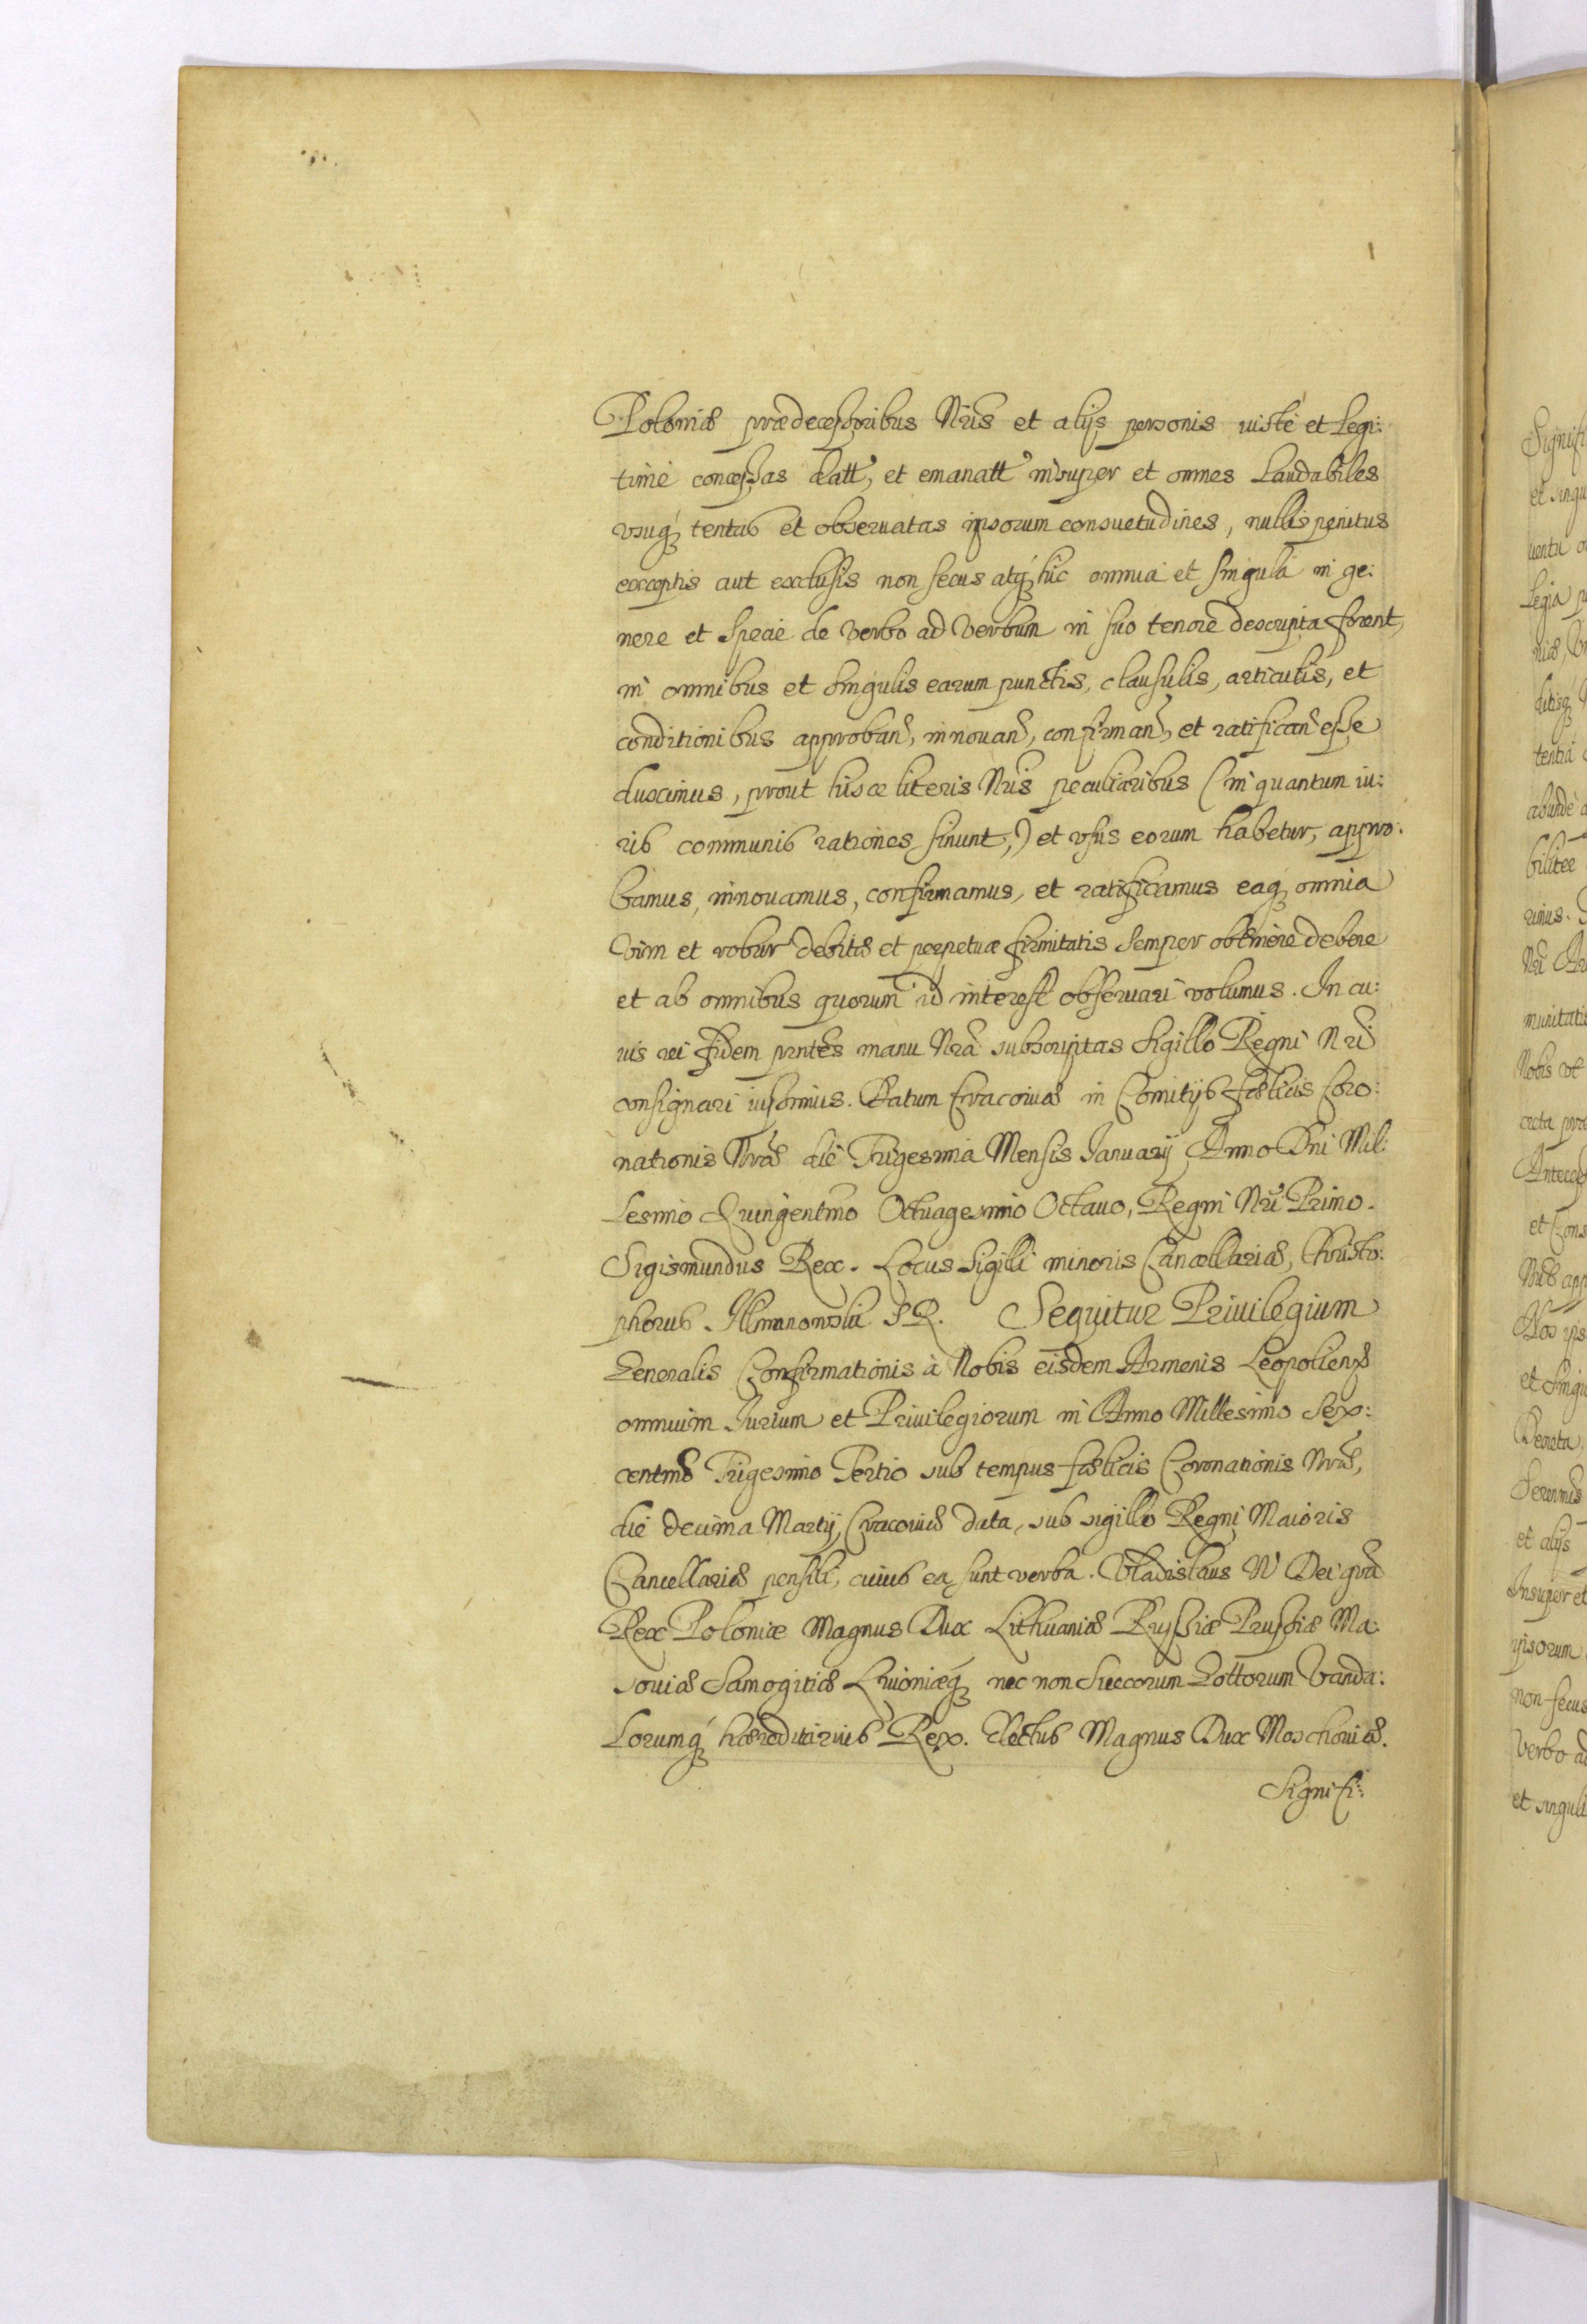 Poloniæ prædecessoribus Nrĩs et alijs personis iustè et Legi:
timè concessas datt, et emanatt insuper et omnes Laudabiles
usuq́ tentas et obseruatas ipsorum consuetudines, nullis penitus
exceptis aut exclusis non secus atq́ hic omnia et singula in ge:
nere et specie de verbo ad verbum in suo tenore descripta forent,
in omnibus et singulis earum punctis, clausulis, articulis, et
conditionibus approband, innouand, confirmand, et ratificand esse
duximus, prout hisce literis Nrĩs peculiaribus (in quantum iu:
ris communis rationes sinunt,) et usus eorum habetur, appro:
bamus, innouamus, confirmamus, et ratificamus eaq́ omnia
Vim et robur debitæ et perpetuæ firmitatis semper obtinere debere
et ab omnibus quorum id interest obseruari volumus. In cu:
ius rei fidem pntes manu Nrã subscriptas sigillo Regni Nrĩ
consignari iussimus. Datum Cracoviæ in Comitijs fælicis Coro:
nationis Nræ die Trigesima Mensis Januarij Anno Dni Mil:
Lesimo Quingentmo Octuagesimo Octauo, Regni Nrĩ Primo.
Sigismundus Rex. Locus Sigilli minoris Cancellariæ, Christo:
phorus SR. Sequitur Priuilegium
Generalis Confirmationis à Nobis eisdem Armenis Leopoliens
omnium Jurium et Priuilegiorum in Anno Millesimo Sex:
centmo Trigesimo Tertio sub tempus fælicis Coronationis Nræ,
die decima Martij, Cracoviæ data, sub sigillo Regni Maioris
Cancellariæ pensili, cuius ea sunt verba. Vladislaus IV Dei grã
Rex Poloniæ Magnus Dux Lithuaniæ Russiæ Prussiæ Ma:
souiæ Samogitiæ Livoniæq́ nec non Suecorum Gottorum Vanda:
Lorumq́ hæreditarius Rex. Electus Magnus Dux Moschouiæ.
Signifi: